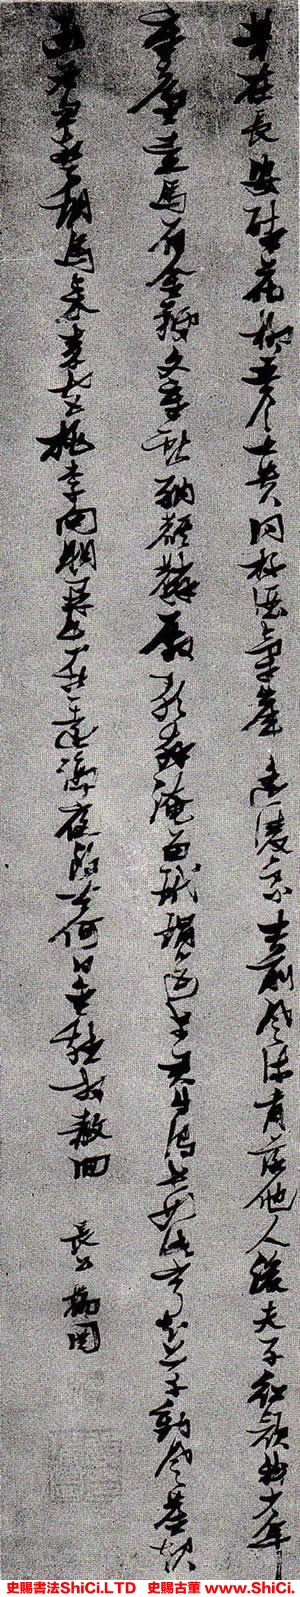 昔在長安醉花柳五侯七貴同杯酒氣岸遙凌豪士前風流肯落他人後夫子紅顏我少年
章臺走馬著金鞭文章獻納麒麟殿歌舞淹留玳瑁筵與君自謂長如此寧知草動風塵起
函谷忽驚胡馬來秦宮桃李向明開我愁遠謫夜郎去何日金雞放赦回 長公
史賜書法ShiCi.LTD 史賜古董 www.ShiCi.